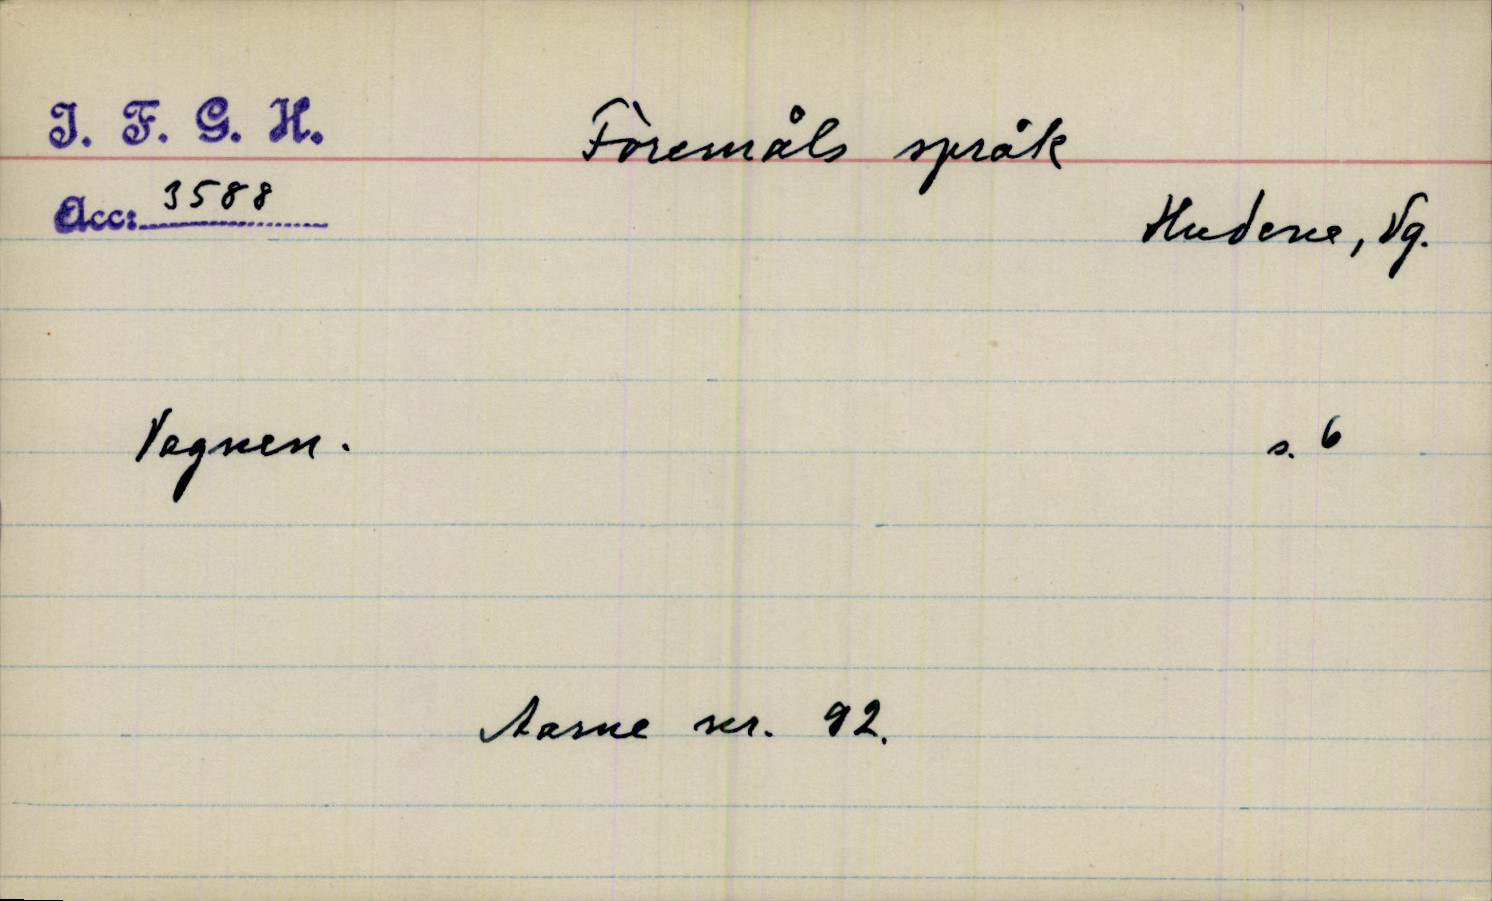 I. F. G. H.
Föremåls språk
Acc: 3588
Hudene, Vg.
Vagnen. s. 6
Aarne nr. 92.